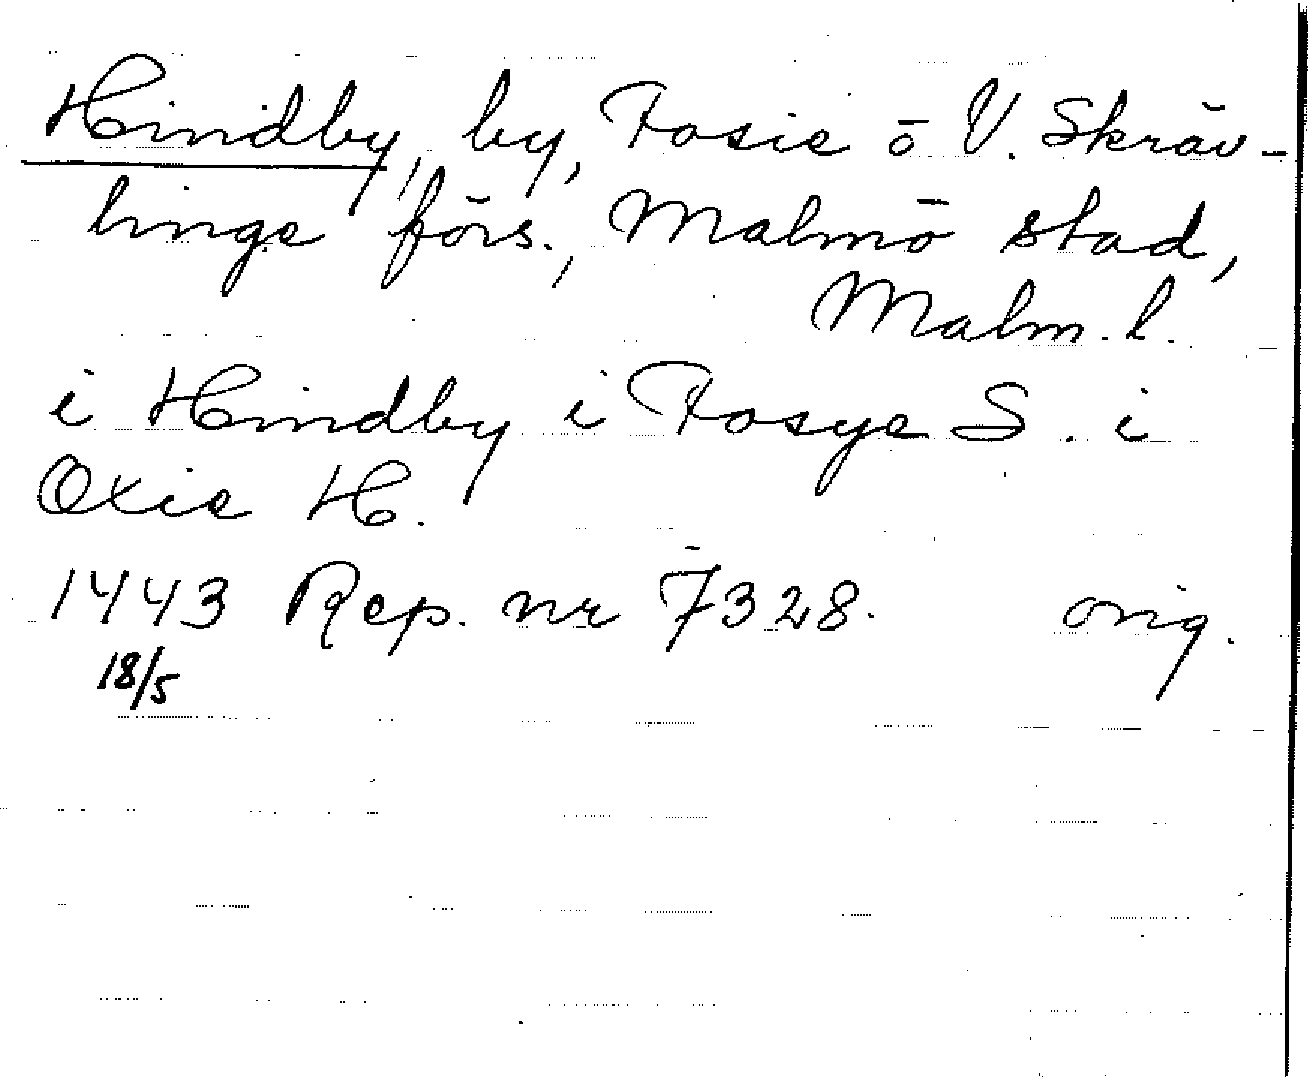 Hindby, by, Fosie o V. Skräv-
linge förs., Malmö stad,
Malm. l.
i Hindby i Fosye S. i
Oxie H.
1443 Rep. nr 7328. orig.
18/5